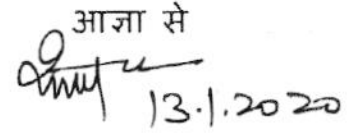 आज्ञा से
13.1.2020